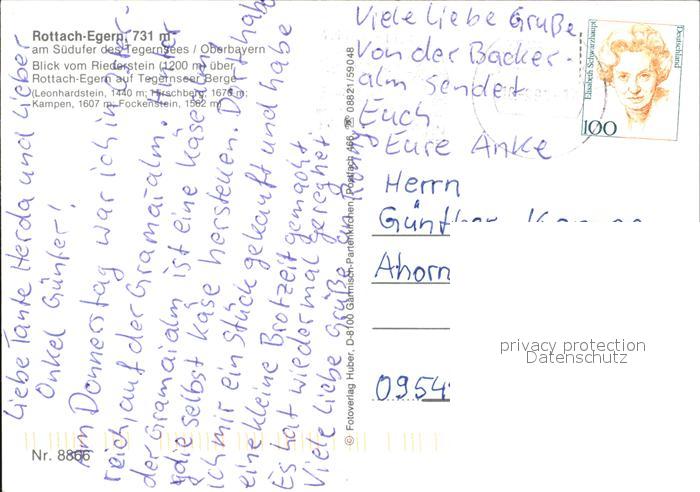 Rottach-Egern, 731 m
am Südufer des Tegernsees / Oberbayern
Blick vom Riederstein (1200 m) über
Rottach-Egern auf Tegernseer Berge
(Leonhardstein, 1440 m; Hirschberg, 1670 m;
Kampen, 1607 m; Fockenstein, 1562 m)
Liebe Tante Herda und lieber
Onkel Günter!
Am Donnerstag war ich in
reich, auf der Gramaialm.
der Gramaialm ist eine Käserei,
die selbst Käse herstellen. Dort habe
ich mir ein Stück gekauft und habe
eine kleine Brotzeit gemacht
Es hat wiedermal geregnet
Viele liebe Grüße
Nr. 8866
© Fotoverlag Huber, D-8100 Garmisch-Partenkirchen, Postfach 466, ☎ 08821/59048
Viele liebe Grüße
von der Bäcker-
alm sendet
Euch
Eure Anke
Deutschland
Elisabeth Schwarzhaupt
100
Herrn
Günther
Ahorn
0954
privacy protection
Datenschutz